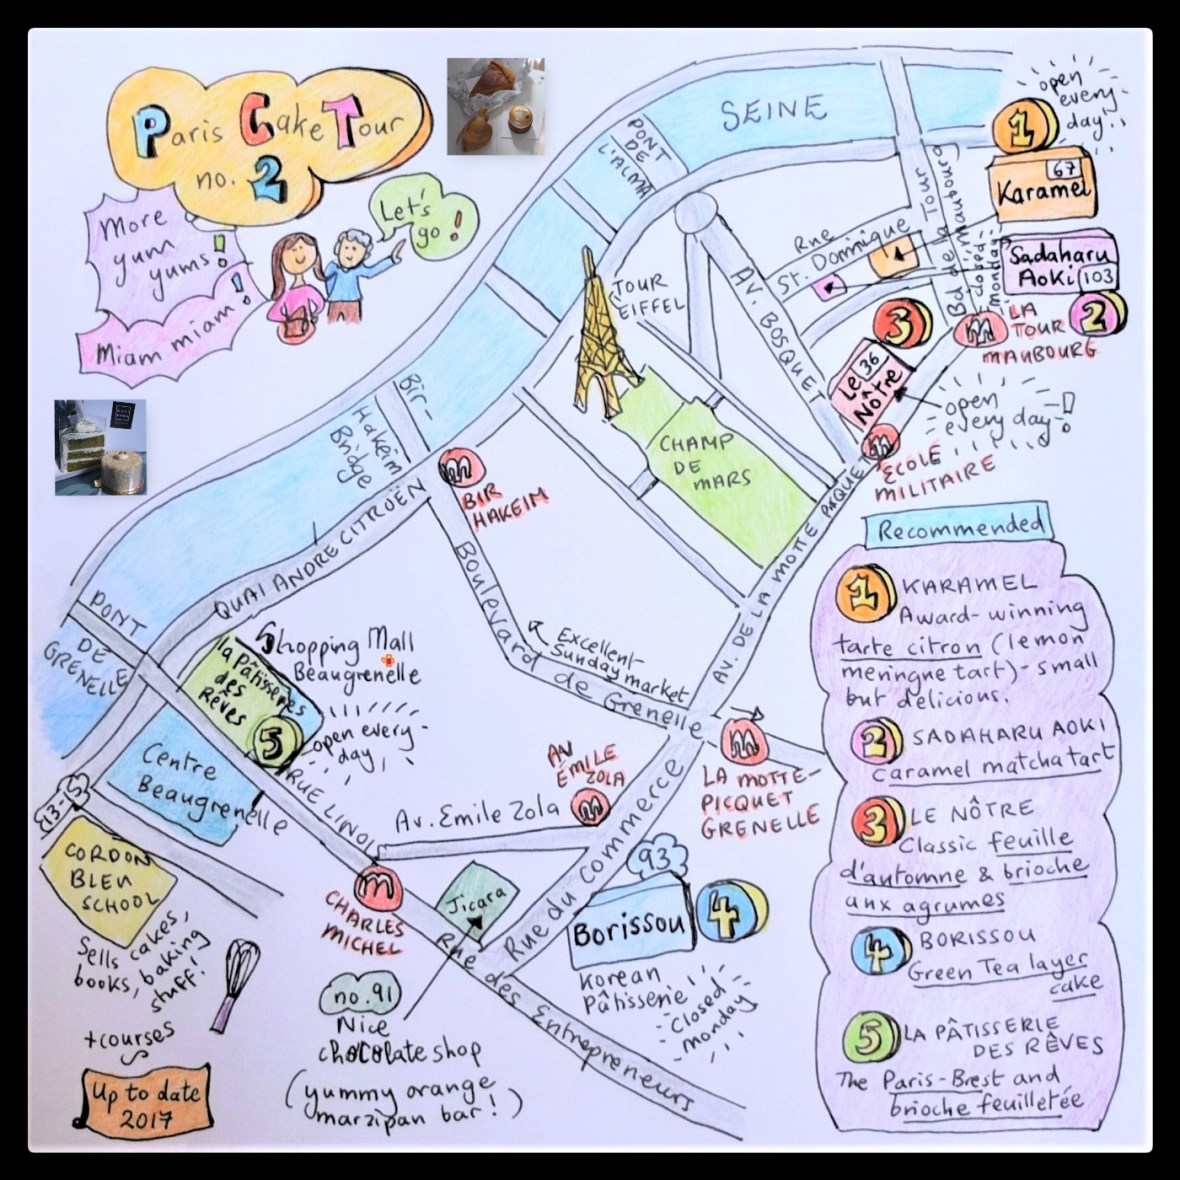 Paris Cake Tour
no. 2
More
yum
yums!
Miam miam!
Let's
go!
SEINE
PONT
DE
L'ALMA
open
every-
day!
1
67
Karamel
Sadaharu
Aoki 103
2
closed
monday
Bd de la Tour
maubourg
Rue
St. Dominique
m
LA
TOUR
MAUBOURG
3
Le 36
Nôtre
open
every day!
m
ECOLE
MILITAIRE
AV. BOSQUET
TOUR
EIFFEL
CHAMP
DE
MARS
Bir-
Hakeim
Bridge
m
BIR
HAKEIM
QUAI ANDRE CITROËN
AV. DE LA MOTTE PIQUE
Boulevard
de Grenelle
Excellent
Sunday market
PONT
DE
GRENELLE
Shopping Mall
Beaugrenelle
la pâtisserie
des
Rêves
5
open every-
day
Centre
Beaugrenelle
RUE LINOIS
13-15
CORDON
BLEU
SCHOOL
Sells cakes,
books, baking
stuff!
+courses
Up to date
2017
AV
ÉMILE
ZOLA
m
Av. Emile Zola
m
LA MOTTE-
PICQUET
GRENELLE
m
CHARLES
MICHEL
Jicara
no. 91
Nice
chocolate shop
(yummy orange
marzipan bar!)
Rue du commerce
Rue des Entrepreneurs
93
Borissou
4
Korean
Pâtisserie
Closed
monday
Recommended
1 KARAMEL
Award-winning
tarte citron (lemon
meringue tart) - small
but delicious.
2 SADAHARU AOKI
Caramel matcha tart
3 LE NÔTRE
Classic feuille
d'automne & brioche
aux agrumes
4 BORISSOU
Green Tea layer
cake
5 LA PÂTISSERIE
DES RÊVES
The Paris-Brest and
brioche feuilletée